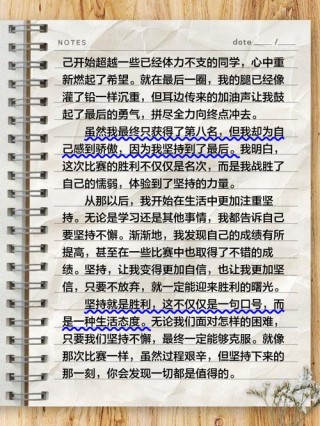 NOTES
date ___ /___
己开始超越一些已经体力不支的同学，心中重
新燃起了希望。就在最后一圈，我的腿已经像
灌了铅一样沉重，但耳边传来的加油声让我鼓
起了最后的勇气，拼尽全力向终点冲去。
虽然我最终只获得了第八名，但我却为自
己感到骄傲，因为我坚持到了最后。我明白，
这次比赛的胜利不仅仅是名次，而是我战胜了
自己的懦弱，体验到了坚持的力量。
从那以后，我开始在生活中更加注重坚
持。无论是学习还是其他事情，我都告诉自己
要坚持不懈。渐渐地，我发现自己的成绩有所
提高，甚至在一些比赛中也取得了不错的成
绩。坚持，让我变得更加自信，也让我更加坚
信，只要不放弃，就一定能迎来胜利的曙光。
坚持就是胜利，这不仅仅是一句口号，而
是一种生活态度。无论我们面对怎样的困难，
只要我们坚持不懈，最终一定能够克服。就像
那次比赛一样，虽然过程艰辛，但坚持下来的
那一刻，你会发现一切都是值得的。